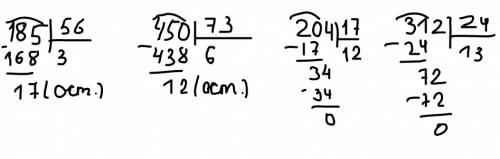 185 56
-168 3
17 (ост.)
450 73
-438 6
12 (ост.)
204 17
-17 12
34
-34
0
312 24
-24 13
72
-72
0